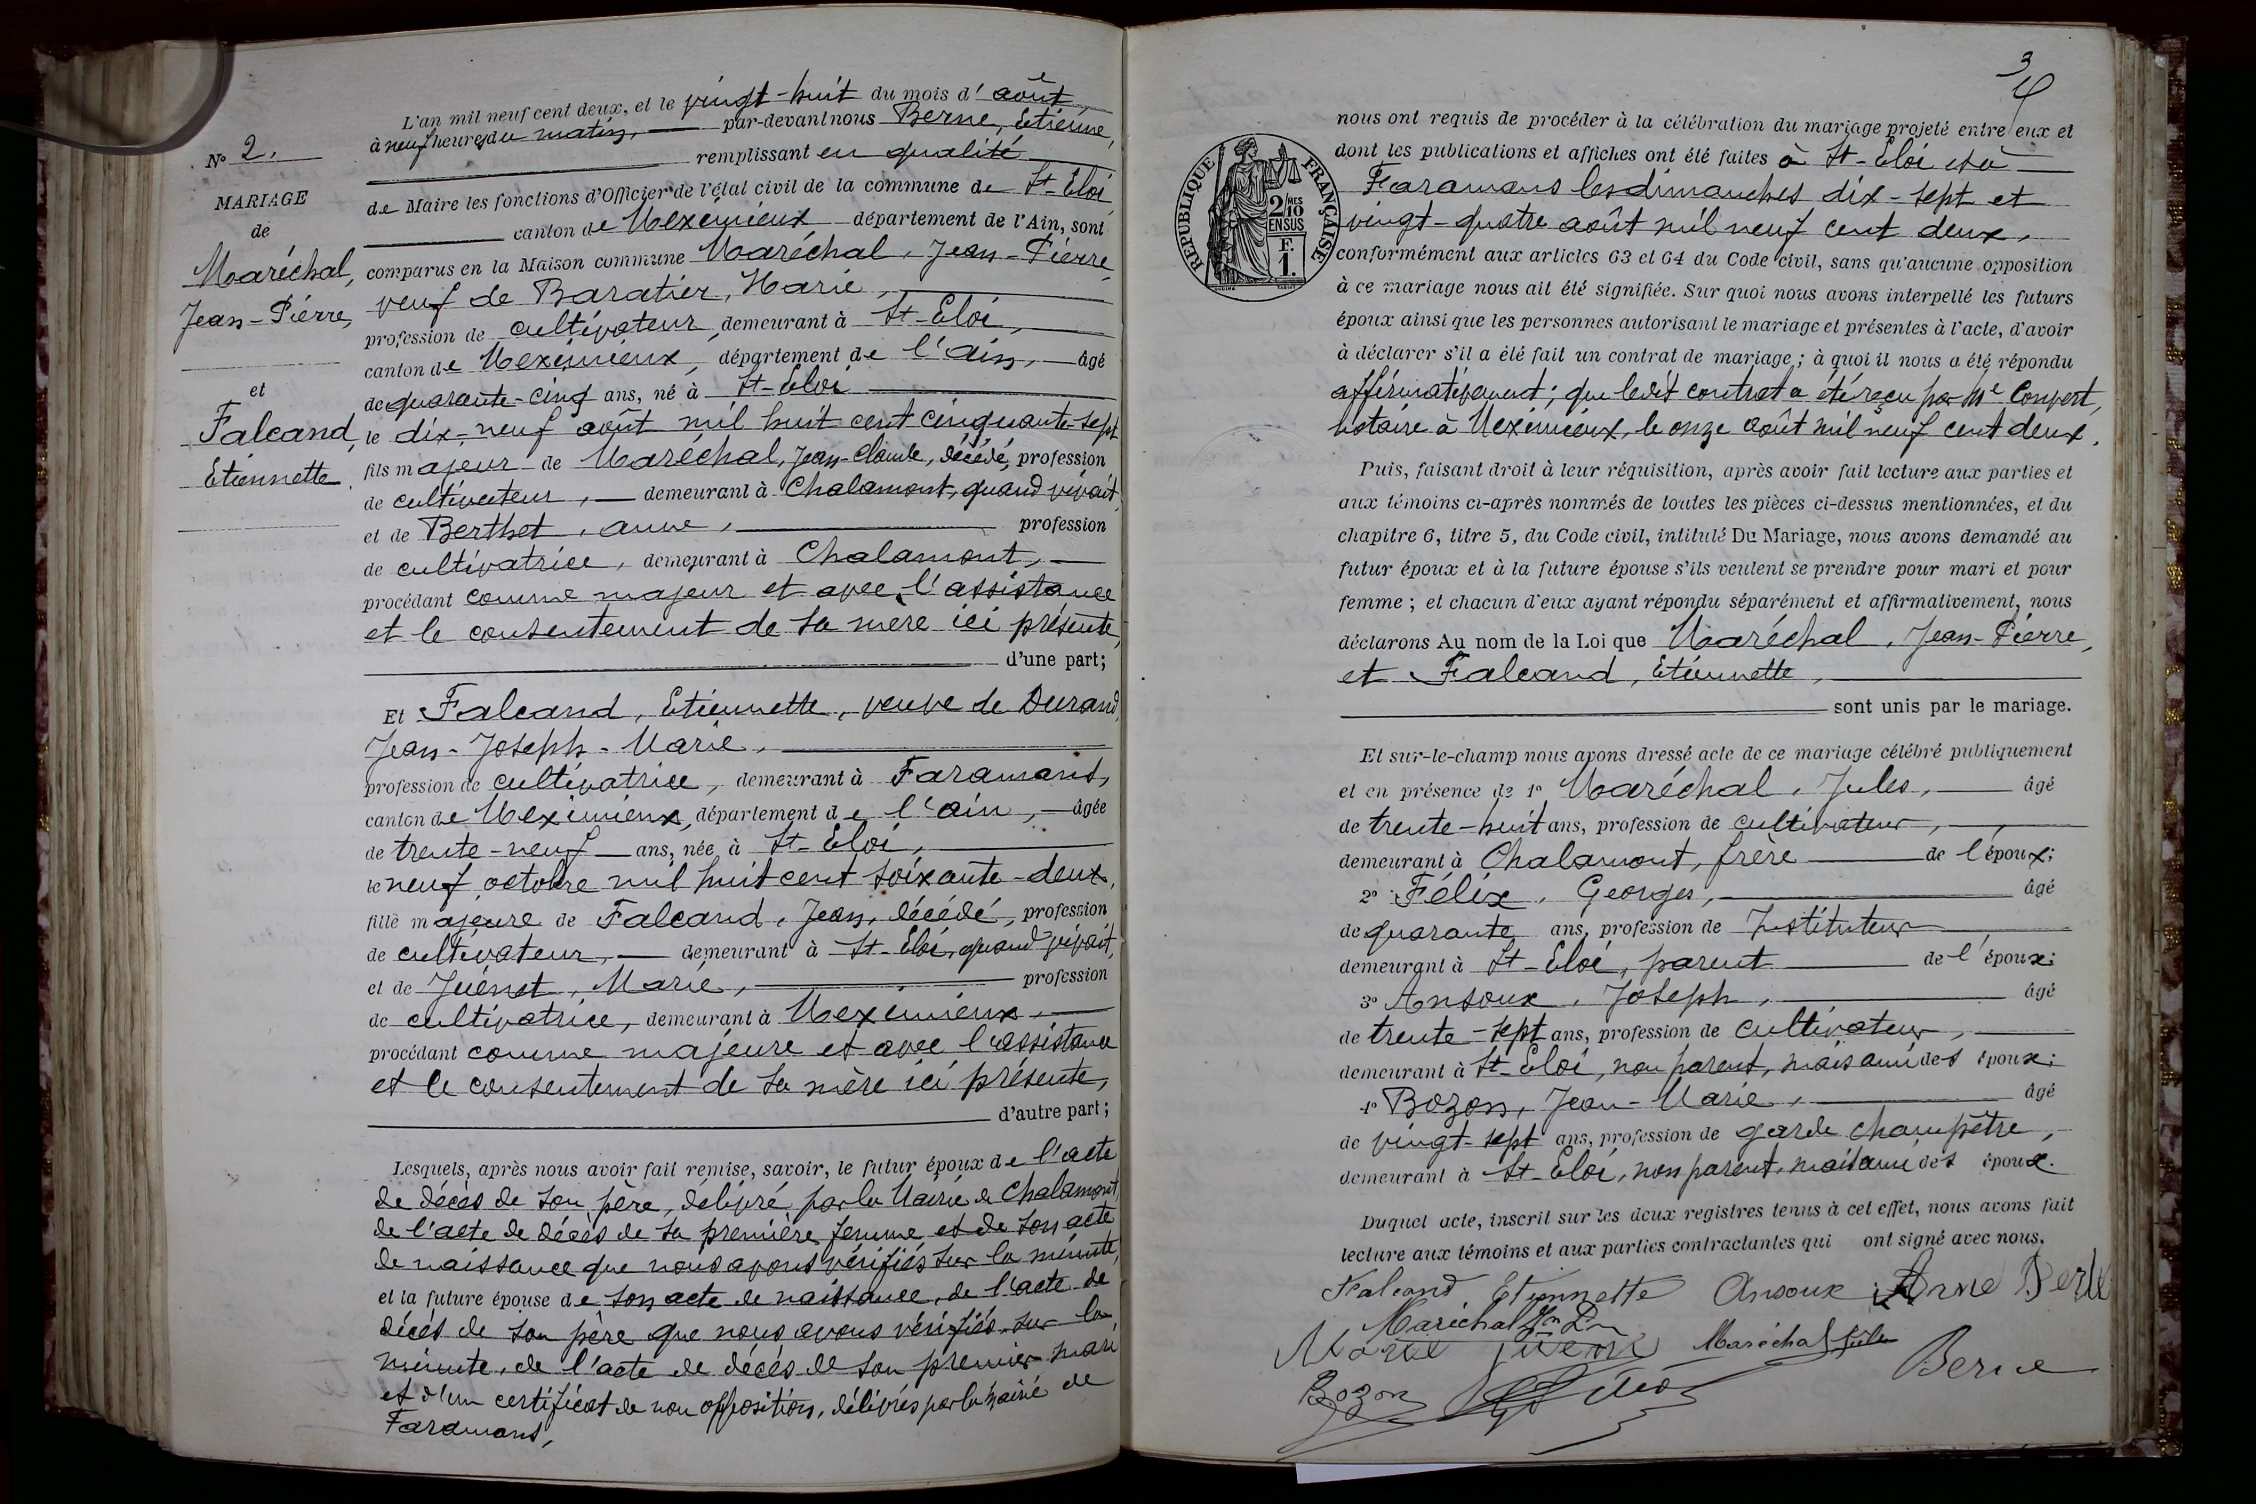 L'an mil neuf cent deux, et le vingt-huit du mois d'août
à neuf heures du matin, par-devant nous Berne, Etienne,
remplissant en qualité
de Maire les fonctions d'Officier de l'état civil de la commune de St-Eloi
canton de Meximieux département de l'Ain, sont
comparus en la Maison commune Maréchal, Jean-Pierre,
veuf de Baratier, Marie,
profession de cultivateur, demeurant à St-Eloi,
canton de Meximieux, département de l'Ain, âgé
de quarante-cinq ans, né à St-Eloi
le dix-neuf août mil huit cent cinquante-sept
fils majeur de Maréchal, Jean-Claude, décédé, profession
de cultivateur, demeurant à Chalamont, quand vivait,
et de Berthet, Anne, profession
de cultivatrice, demeurant à Chalamont,
procédant comme majeur et avec l'assistance
et le consentement de sa mère ici présente,
d'une part;
Et Falcand, Etiennette, veuve de Durand,
Jean-Joseph-Marie,
profession de cultivatrice, demeurant à Faramans,
canton de Meximieux, département de l'Ain, âgée
de trente-neuf ans, née à St-Eloi,
le neuf octobre mil huit cent soixante-deux,
fille majeure de Falcand, Jean, décédé, profession
de cultivateur, demeurant à St-Eloi, quand vivait,
et de Juénet, Marie, profession
de cultivatrice, demeurant à Meximieux,
procédant comme majeure et avec l'assistance
et le consentement de sa mère ici présente,
d'autre part;
Lesquels, après nous avoir fait remise, savoir, le futur époux de l'acte
de décès de son père, délivré par la Mairie de Chalamont,
de l'acte de décès de sa première femme et de son acte
de naissance que nous avons vérifiés sur la minute,
et la future épouse de son acte de naissance, de l'acte de
décès de son père que nous avons vérifiés sur la
minute, de l'acte de décès de son premier mari
et d'un certificat de non opposition, délivrés par la mairie de
Faramans,
No 2.
MARIAGE
de
Maréchal,
Jean-Pierre,
et
Falcand,
Etiennette.
3
nous ont requis de procéder à la célébration du mariage projeté entre eux et
dont les publications et affiches ont été faites à St-Eloi et à
Faramans les dimanches dix-sept et
vingt-quatre août mil neuf cent deux,
conformément aux articles 63 et 64 du Code civil, sans qu'aucune opposition
à ce mariage nous ait été signifiée. Sur quoi nous avons interpellé les futurs
époux ainsi que les personnes autorisant le mariage et présentes à l'acte, d'avoir
à déclarer s'il a été fait un contrat de mariage; à quoi il nous a été répondu
affirmativement; que ledit contrat a été reçu par Me Convert,
notaire à Meximieux, le onze août mil neuf cent deux.
Puis, faisant droit à leur réquisition, après avoir fait lecture aux parties et
aux témoins ci-après nommés de toutes les pièces ci-dessus mentionnées, et du
chapitre 6, titre 5, du Code civil, intitulé Du Mariage, nous avons demandé au
futur époux et à la future épouse s'ils veulent se prendre pour mari et pour
femme; et chacun d'eux ayant répondu séparément et affirmativement, nous
déclarons Au nom de la Loi que Maréchal, Jean-Pierre,
et Falcand, Etiennette,
sont unis par le mariage.
Et sur-le-champ nous avons dressé acte de ce mariage célébré publiquement
et en présence de 1o Maréchal, Jules, âgé
de trente-huit ans, profession de cultivateur,
demeurant à Chalamont, frère de l'époux;
2o Félix, Georges, âgé
de quarante ans, profession de Instituteur
demeurant à St-Eloi, parent de l'époux;
3o Ansoux, Joseph, âgé
de trente-sept ans, profession de cultivateur,
demeurant à St-Eloi, non parent, mais ami des époux;
4o Bozon, Jean-Marie, âgé
de vingt-sept ans, profession de garde champêtre,
demeurant à St-Eloi, non parent, mais ami des époux.
Duquel acte, inscrit sur les deux registres tenus à cet effet, nous avons fait
lecture aux témoins et aux parties contractantes qui ont signé avec nous.
Falcand Etiennette Ansoux Anne Berte
Maréchal Jn Pre
Marie Juenet Maréchal Jules
Bozon Félix Berne
RÉPUBLIQUE FRANÇAISE
2/10 MES
EN SUS
F.
1.